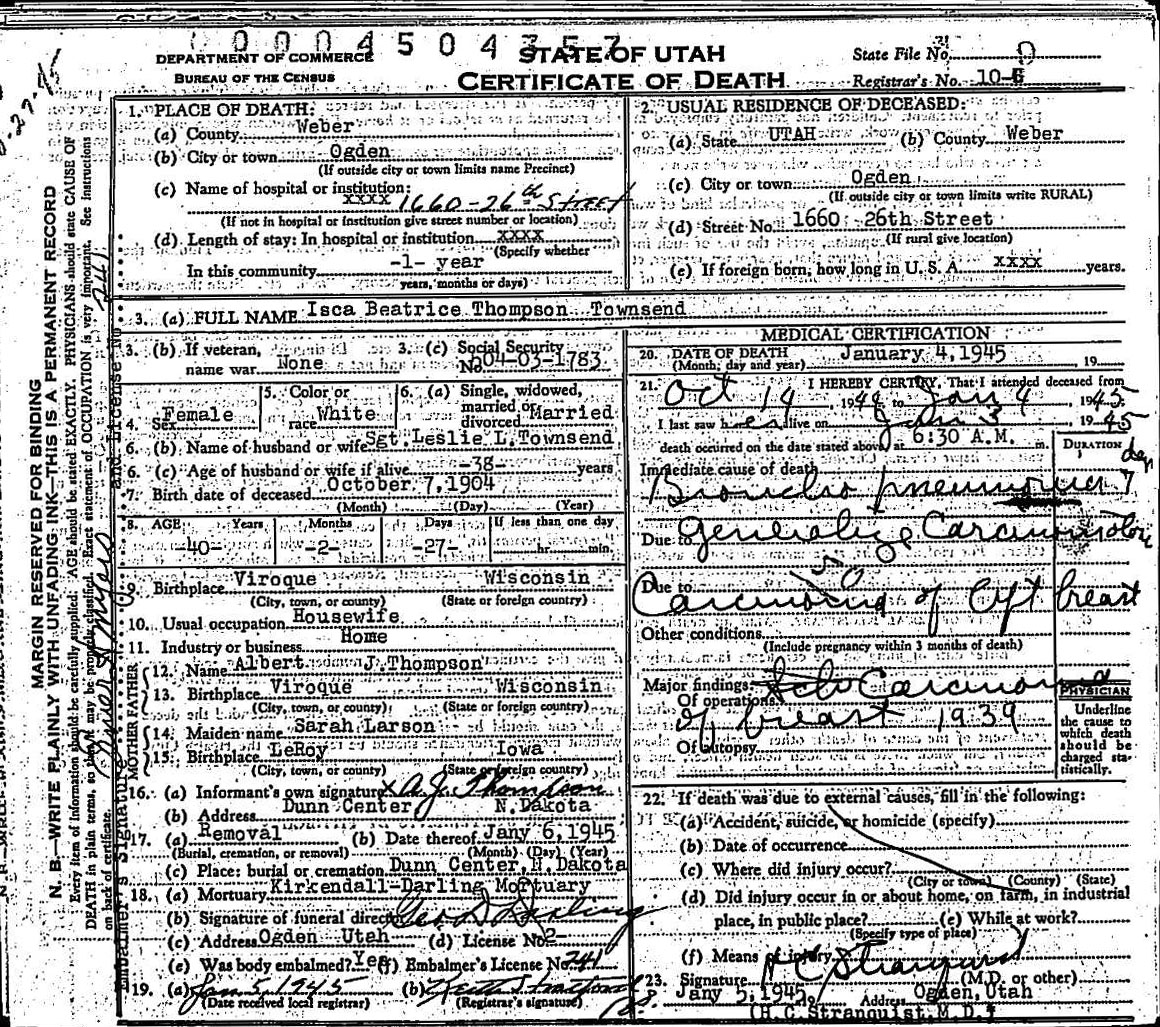 00045043 57
DEPARTMENT OF COMMERCE
BUREAU OF THE CENSUS
STATE OF UTAH
CERTIFICATE OF DEATH
State File No.
Registrar's No. 10-
MARGIN RESERVED FOR BINDING
N. B.—WRITE PLAINLY WITH UNFADING INK—THIS IS A PERMANENT RECORD
Every item of information should be carefully supplied. AGE should be stated EXACTLY. PHYSICIANS should state CAUSE OF
DEATH in plain terms, so that it may be properly classified. Exact statement of OCCUPATION is very important. See instructions
on back of certificate.
Embalmer's Signature
and License No. 241
1. PLACE OF DEATH:
(a) County Weber
(b) City or town Ogden
(If outside city or town limits name Precinct)
(c) Name of hospital or institution:
xxxx 1660-26th Street
(If not in hospital or institution give street number or location)
(d) Length of stay: In hospital or institution xxxx
(Specify whether
In this community -1- year
years, months or days)
2. USUAL RESIDENCE OF DECEASED:
(a) State UTAH (b) County Weber
(c) City or town Ogden
(If outside city or town limits write RURAL)
(d) Street No. 1660 26th Street
(If rural give location)
(e) If foreign born, how long in U. S. A. xxxx years.
3. (a) FULL NAME Isca Beatrice Thompson Townsend
3. (b) If veteran, name war None 3. (c) Social Security No. 504-03-1783
4. Sex Female 5. Color or race White 6. (a) Single, widowed, married or divorced Married
6. (b) Name of husband or wife Sgt. Leslie L. Townsend
6. (c) Age of husband or wife if alive -38- years
7. Birth date of deceased October 7, 1904
(Month) (Day) (Year)
8. AGE Years Months Days If less than one day
-40- -2- -27- hr. min.
9. Birthplace Viroque Wisconsin
(City, town, or county) (State or foreign country)
10. Usual occupation Housewife
11. Industry or business Home
FATHER
12. Name Albert J. Thompson
13. Birthplace Viroque Wisconsin
(City, town, or county) (State or foreign country)
MOTHER
14. Maiden name Sarah Larson
15. Birthplace LeRoy Iowa
(City, town, or county) (State or foreign country)
16. (a) Informant's own signature x A. J. Thompson
(b) Address Dunn Center N. Dakota
17. (a) Removal (b) Date thereof Jany 6, 1945
(Burial, cremation, or removal) (Month) (Day) (Year)
(c) Place: burial or cremation Dunn Center, N. Dakota
18. (a) Mortuary Kirkendall-Darling Mortuary
(b) Signature of funeral director Geo. D. Darling
(c) Address Ogden Utah (d) License No. 2-
(e) Was body embalmed? Yes (f) Embalmer's License No. 241
19. (a) Jan 5, 1945 (b)
(Date received local registrar) (Registrar's signature)
MEDICAL CERTIFICATION
20. DATE OF DEATH January 4, 1945 19
(Month, day and year)
21. I HEREBY CERTIFY, That I attended deceased from
Oct 19, 1944 to Jan 4 1945
I last saw her alive on Jan 3 1945
death occurred on the date stated above, at 6:30 A.M. m.
DURATION
Immediate cause of death
Broncho pneumonia 7 days
Due to Generalized Carcinomatosis
50
Due to
Carcinoma of left breast
Other conditions
(Include pregnancy within 3 months of death)
Major findings:
Of operations Carcinoma
of breast 1939
Of autopsy
PHYSICIAN
Underline
the cause to
which death
should be
charged sta-
tistically.
22. If death was due to external causes, fill in the following:
(a) Accident, suicide, or homicide (specify)
(b) Date of occurrence
(c) Where did injury occur?
(City or town) (County) (State)
(d) Did injury occur in or about home, on farm, in industrial
place, in public place? (e) While at work?
(Specify type of place)
(f) Means of injury
23. Signature H C Stranquist
(M.D. or other)
Jany 5, 1945 Address Ogden, Utah
(H. C. Stranquist, M.D.)